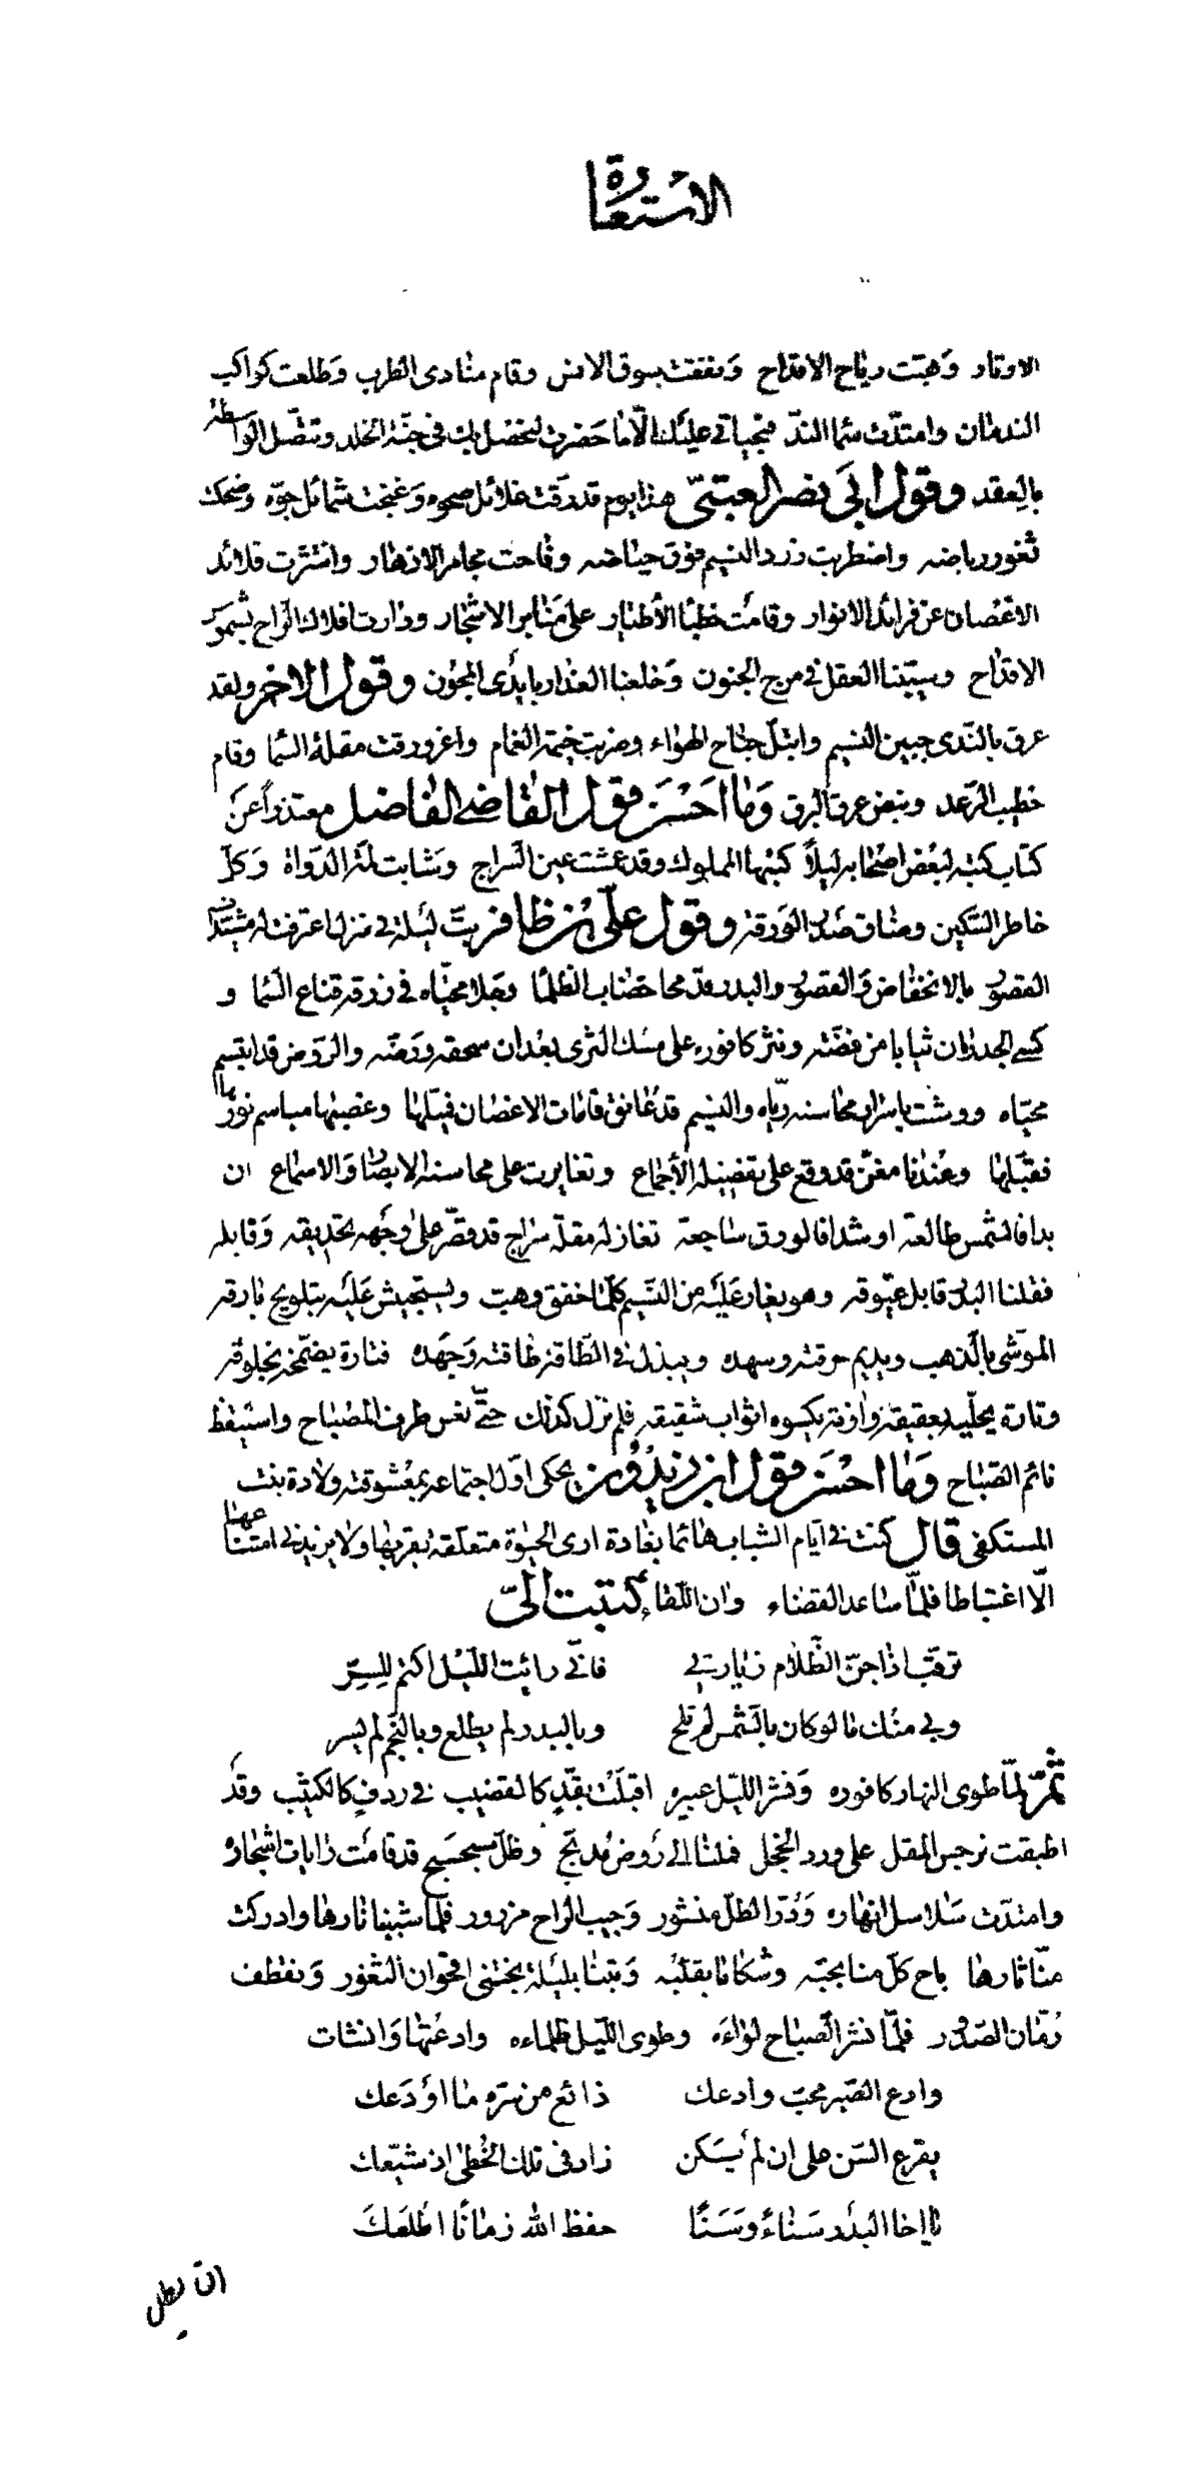 الاستعارة
الاوتار وَهبّت رياح الاقداح وَنفقت سوق الانس وقام منادى الطرب وَطلعت كواكب
الندمان وامتدّت سما الندّ فبحياتى عليك الّا ما حَضرت لنحصل بك فى جنّة الخلد وتتصّل الوَاسطة
بالعِقد وقول ابى نصر العتبىّ هذا يوم قد رَقّت غلائل صحوه وَغنجت شمائل جوّه وضحك
ثغور رياضه واضطرب زرد النسيم فوق حياضه وفاحت مجامر الازهار وانتثرت قلائد
الاغصان عن فرائد الانوار وقامت خطبا الأطيار على مَنابر الاشجار ودارت افلاك الراح بشموس
الاقداح وسيّبنا العقل فى مرج الجنون وَخلعنا العذار بايدى المجُون وقول الاخر ولقد
عرق بالنّدى جبين النسيم وابتلّ جناح الهواء وضربت خيمة الغمام واغرورقت مقلة السّما وقام
خطيب الرّعد ونبض عرق البرق وَما احَسْنَ قول القاضى الفاضل معتذراً عَن
كتاب كتبه لبعُض اصُحابه ليلاً كتبها المملوك وقد عشت عين السّراج وشَابت لمّة الدّواة وَكلّ
خاطر السّكين وضاق صَدر الورقة وقول علىّ بن ظافر بتّ ليلة فى منزل اعترفت له مشيّدات
القصور بالانخفاض وَالقصور والبدر قدّ محا خضاب الظلما وجلا محيّاه فى زرقة قناع السّما و
كسى الجدران ثيابا من فضّته ونثر كافوره على مسْك الثرى بعْد ان سحقه ورَضّه والرّوض قد ابتسم
محيّاه ووشت باسرار محاسنه ريّاه والنسيم قد عَانق قامات الاغصان فميّلها وغصبها مباسم نورها
فقبّلها وعُندنا مغنّ قد وقع على تفضيله الأجماع وتغايرت على محاسنه الابصار وَالاسماع ان
بدا فالشمس طالعة او شدا فالورق ساجعة تغازله مقلة سراج قد قصّر على وجْهه تحديقه وَقابله
فقلنا البدر قابل عيّوقه وهو يغار عَليْه من النّسيم كلّما خفق وهبّ ويستجيش عَليْه بتلويح بارقه
الموّشى بالّذهب ويديم حرقته وسهده ويبذل فى الطّافة طاقته وَجهَده فتارة يضمّخه بخلوقه
وتارة يحلّيه بعقيقه واونة يكسوه اثواب شقيقه فلم نزل كذلك حتّى نعس طرف المصْباح واستيقظ
نائم الصّباح وَما احْسَن قول ابن زيْدُون يحكى اوّل اجتماعه بمعْشوقته ولّادة بنت
المستكفى قال كنت فى ايّام الشباب هائما بغادة ارى الحيٰوة متعلّقة بقربها ولا يزيدنى امتناعها
الّا اغتباطا فلمّا ساعد القضاء وان اللّقاء كتبت الىّ
ترقّب اذا جنّ الظّلام زيارتى فانّى رايْت اللّيْل اكتم للسِرّ
وبى منْك ما لو كان بالشّمس لم تلح وبالبدر لم يطلع وبالنّجم لم يسر
ثمّ لمّا طوى النهار كافوره وَنشر اللّيل عبيره اقبلَت بقدّ كالقضيب فى ردفٍ كالكثيب وقَد
اطبقت نرجس المقل على ورد الخجل فملنا الى رَوض مُدبّج وظلّ سجسَج قد قامَت رايات اشجاره
وامتدّت سَلاسل انهاره وَدُرّ الطلّ منثور وَجيب الرّاح مزرور فلمّا شببنا نارها وادركت
منّا ثارها باح كلّ منا بحبّه وشكا ما بقلبْه وَبتنا بليْلة نجتنى اقحوان الثغور وَنقطف
رُمّان الصّدُور فلمّا نشر الصّباح لواءَه وطوى اللّيل ظلماءه وادعْتها وَانشات
وادع الصّبر محبّ وادعك ذائع من سرّه ما اوْدَعك
يقرع السّن على ان لم يَكن زاد فى تلك الخُطى اذ شيّعك
يا اخا البدْر سَناءً وسَنًا حفظ الله زمانًا اطْلعَكَ
ان يطل